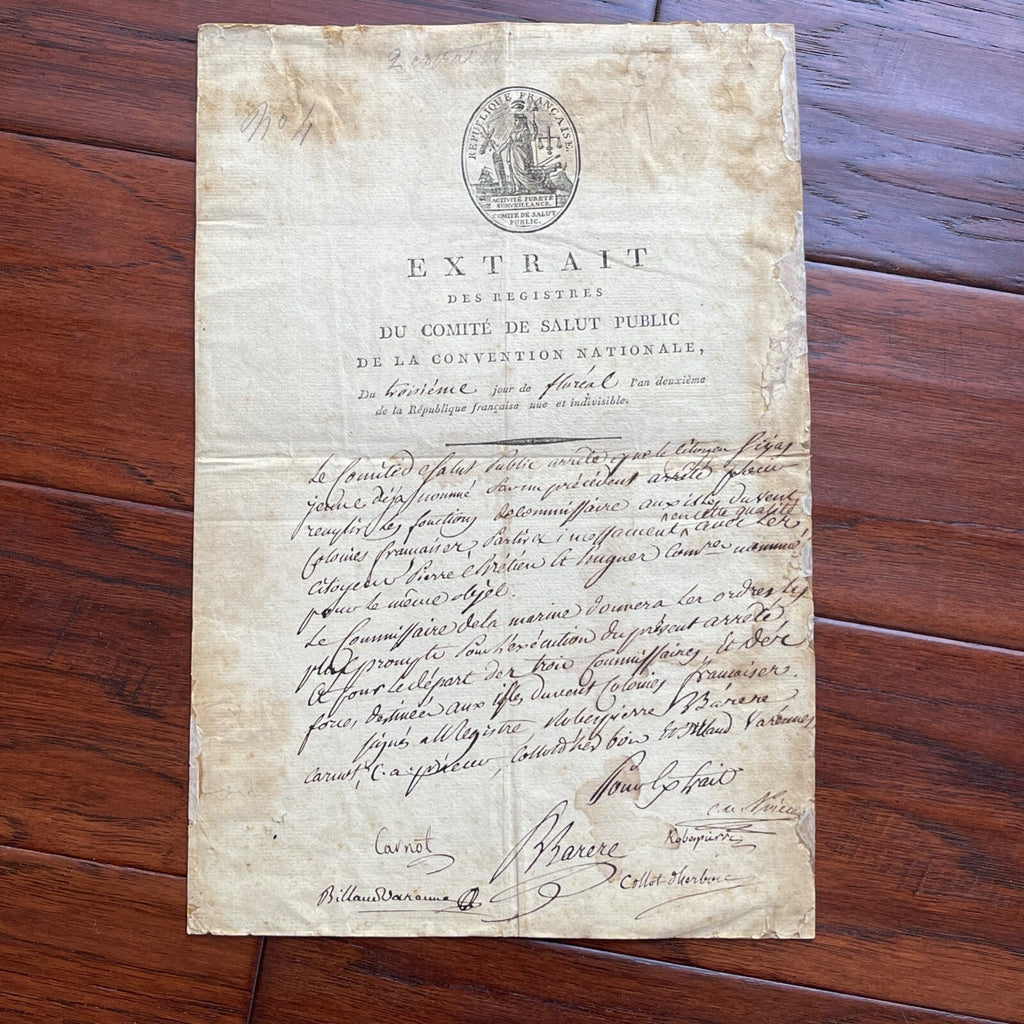 No 4
RÉPUBLIQUE FRANÇAISE.
ACTIVITÉ PURETÉ
SURVEILLANCE.
COMITÉ DE SALUT
PUBLIC.
EXTRAIT
DES REGISTRES
DU COMITÉ DE SALUT PUBLIC
DE LA CONVENTION NATIONALE,
Du troisième jour de floréal l'an deuxième
de la République française une et indivisible.
Le Comité de Salut Public arrête que le Citoyen
jeune déja nommé par un précédent arrêté pour
remplir les fonctions de commissaire aux isles du vent
Colonies françaises, partira incessament en cette qualité avec les
Citoyens Pierre Chrétien et hugues Comres nommés
pour le même objet.
Le Commissaire de la marine donnera les ordres les
plus prompts pour l'exécution du présent arrêté,
et pour le départ des trois Commissaires, et des
forces destinées aux isles du vent Colonies françaises.
signés au Registre, Robespierre Barere
Carnot, C. a. prieur, Collot d'herbois et Billaud Varennes
Pour Extrait
Carnot
Barere
Robespierre
Billaud Varenne
Collot d'herbois